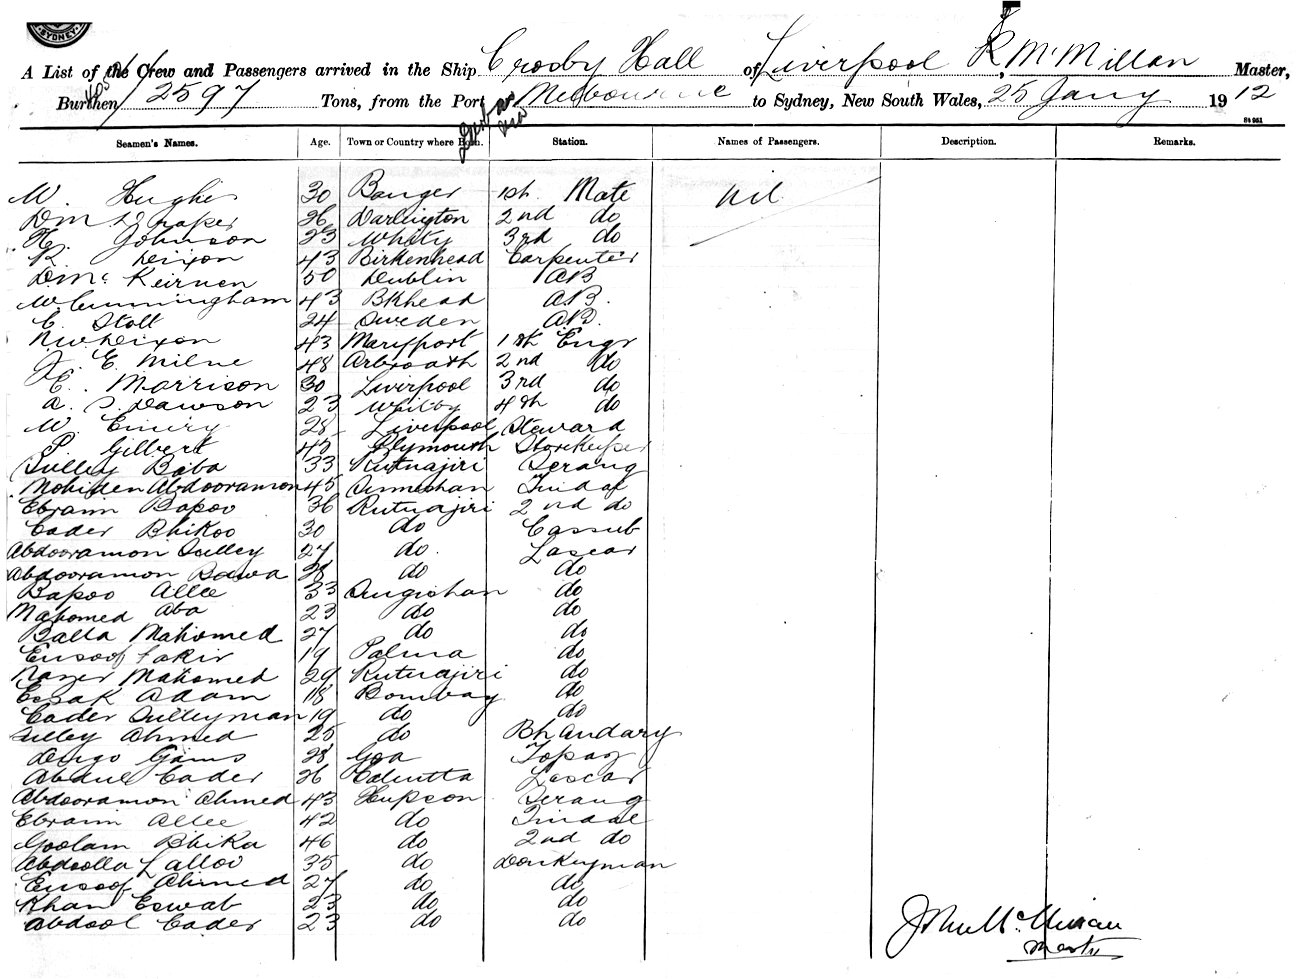 SYDNEY
A List of the Crew and Passengers arrived in the Ship Crosby Hall of Liverpool, R McMillan Master,
Burthen 2597 Tons, from the Port of Melbourne to Sydney, New South Wales, 25 Jany 1912
Seamen's Names. Age. Town or Country where Born. Station. Names of Passengers. Description. Remarks.
W. Hughes 30 Bangor 1st. Mate Nil
Draper 26 Darlington 2nd do
H. Johnson 23 Whitby 3rd do
R Dixon 43 Birkenhead Carpenter
D Mc Keirnen 50 Dublin AB
W Cunningham 43 Bkhead AB.
C. Stolt 24 Sweden AB.
Nw Dixon 43 Maryport 1st Engr
J. E. Milne 48 Arbroath 2nd do
E. Morrison 30 Liverpool 3rd do
A. S. Dawson 23 Whitby 4th do
W Emery 28 Liverpool Steward
P. Gilbert 45 Plymouth Storekeeper
Sulley Baba 33 Rutnajiri Serang
Mohiden Abdooramon 45 Tindal
Ebram Bapoo 36 Rutnajiri 2nd do
Cader Bhikoo 30 do Cassub
Abdooramon Sulley 27 do. Lascar
Abdooramon Bawa 28 do do
Bapoo Allee 33 do
Mahomed Aba 23 do do
Balla Mahomed 27 do do
Eusoof Fakir 19 Palma do
Mahomed 29 Rutnajiri do
Essak Adam 18 Bombay do
Cader Sulleyman 19 do do
Sulley Ahmed 25 do Bhandary
Gams 28 Goa Topaz
Abdul Cader 26 Calcutta Lascar
Abdooramon Ahmed 43 Hupson Serang
Ebraim Allee 42 do Tindal
Goolam Bhika 46 do 2nd do
Abdoolla Lalloo 35 do Donkeyman
Eusoof Ahmed 27 do do
Khan Eswab 23 do do
Abdool Cader 23 do do